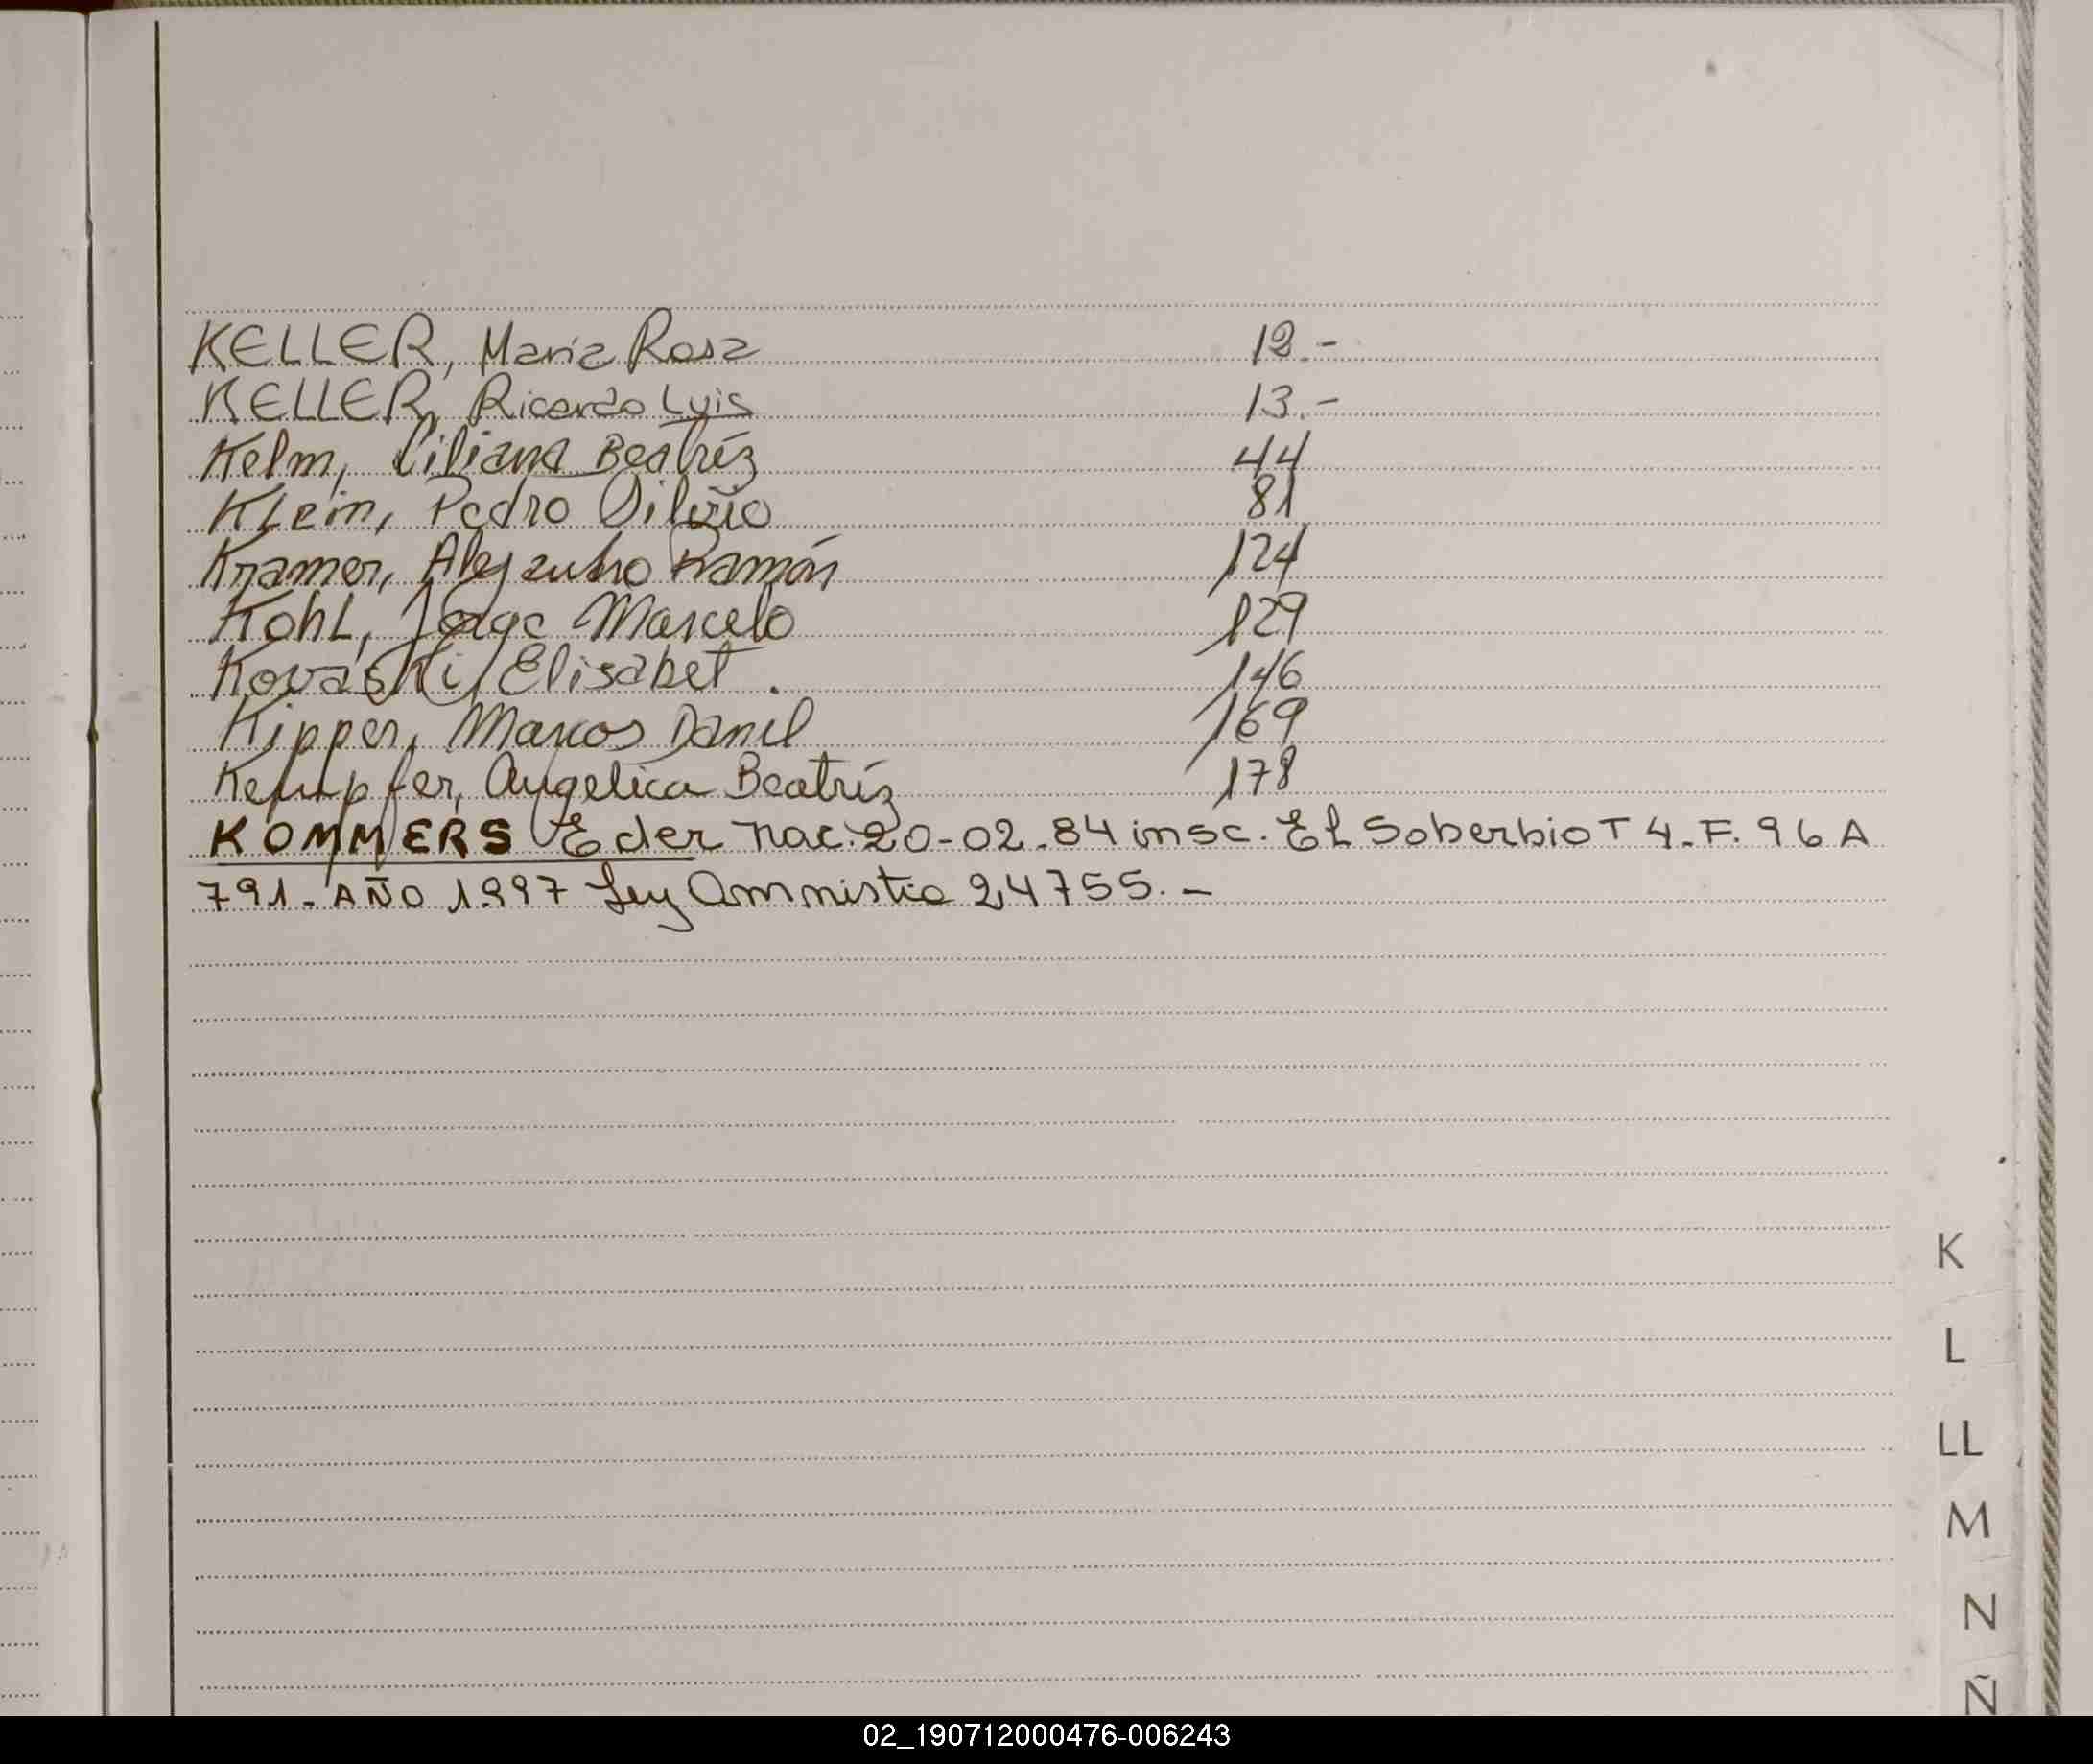 KELLER, María Rosa 12.-
KELLER, Ricardo Luis 13.-
Kelm, Liliana Beatríz 44
KLein, Pedro 81
Kramer, Alejandro Ramón 124
KohL, Jorge Marcelo 129
Kovaski, Elisabet. 146
Kipper, Marcos Daniel 169
Kempfer, Angelica Beatríz 178
KOMMERS Eder nac. 20-02-84 insc. EL Soberbio T 4-F. 96 A
791- AÑO 1997 Ley Ammistia 24755.-
K
L
LL
M
N
Ñ
02_190712000476-006243